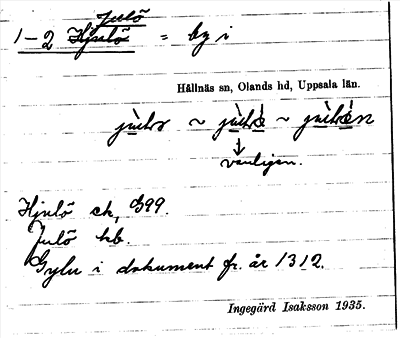 Julö
1-2 Hjulö = by i
Hållnäs sn, Olands hd, Uppsala län.
vanligen.
Hjulö ek, G99.
Julö kb.
Gylu i dokument fr. år 1312.
Ingegärd Isaksson 1935.